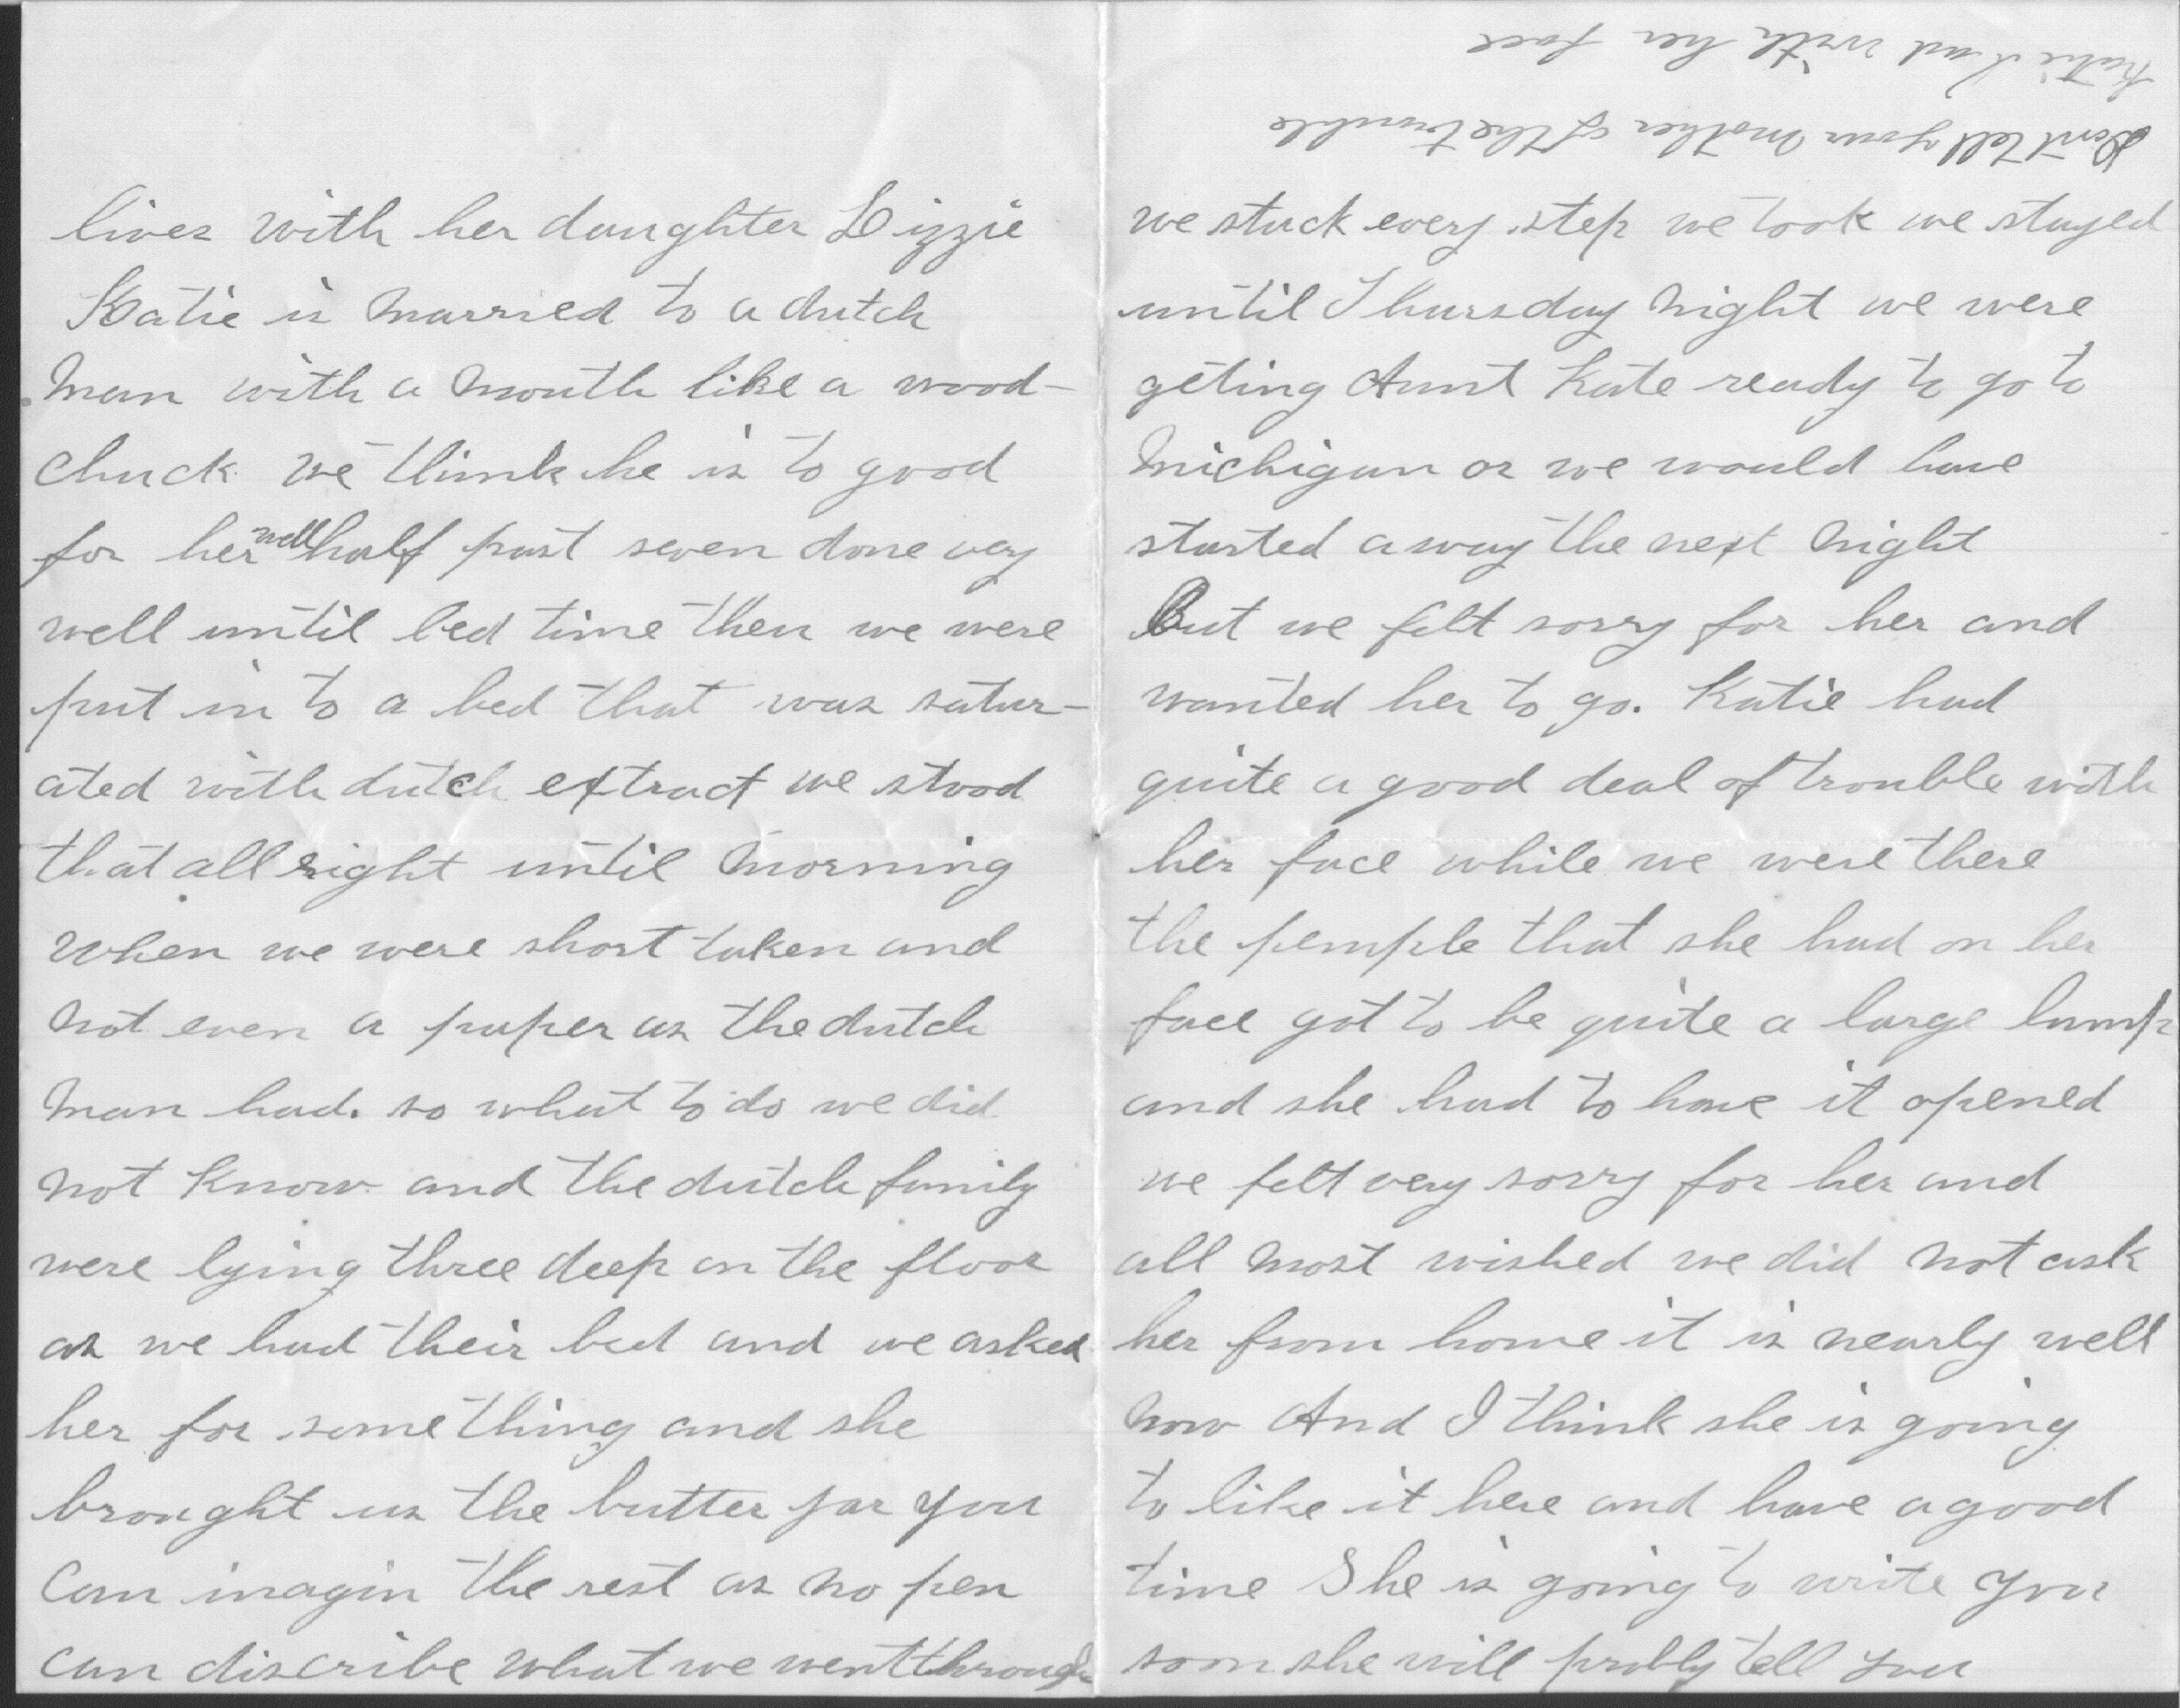 lives with her daughter Lizzie
Katie is married to a dutch
man with a mouth like a wood-
chuck we think he is to good
for her well half past seven done very
well until bed time then we were
put in to a bed that was satur-
ated with dutch extract we stood
that all right until morning
when we were short taken and
not even a paper as the dutch
man had. so what to do we did
not know and the dutch family
were lying three deep on the floor
as we had their bed and we asked
her for some thing and she
brought us the butter jar you
can imagin the rest as no pen
can discribe what we went through
Don't tell your Mother of the trouble
Katie had with her face
we stuck every step we took we stayed
until Thursday night we were
geting Aunt Kate ready to go to
Michigan or we would have
started away the next night
But we felt sorry for her and
wanted her to go. Katie had
quite a good deal of trouble with
her face while we were there
the pemple that she had on her
face got to be quite a large lump
and she had to have it opened
we felt very sorry for her and
all most wished we did not ask
her from home it is nearly well
now And I think she is going
to like it here and have a good
time She is going to write you
soon she will probly tell you